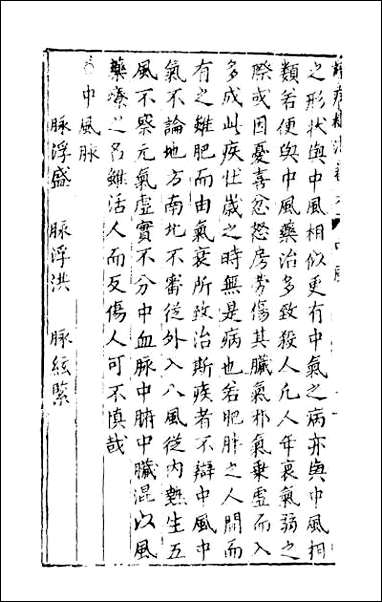 之形狀與中風相似更有中氣之病亦與中風相
類若便與中風藥治多致殺人凡人年衰氣弱之
際或因憂喜忿怒房勞傷其臟氣邪氣乗虛而入
多成此疾仕歲之時無是病也若肥胖之人間而
有之雖肥而由氣衰所致治斯疾者不辯中風中
氣不論地方南北不審從外入八風從内熱生五
風不祭元氣虛實不分中血脉中腑中臟混以風
藥療之名雖活人而反傷人可不慎哉
中風脉
脉浮盛　脉浮洪　脉絃緊